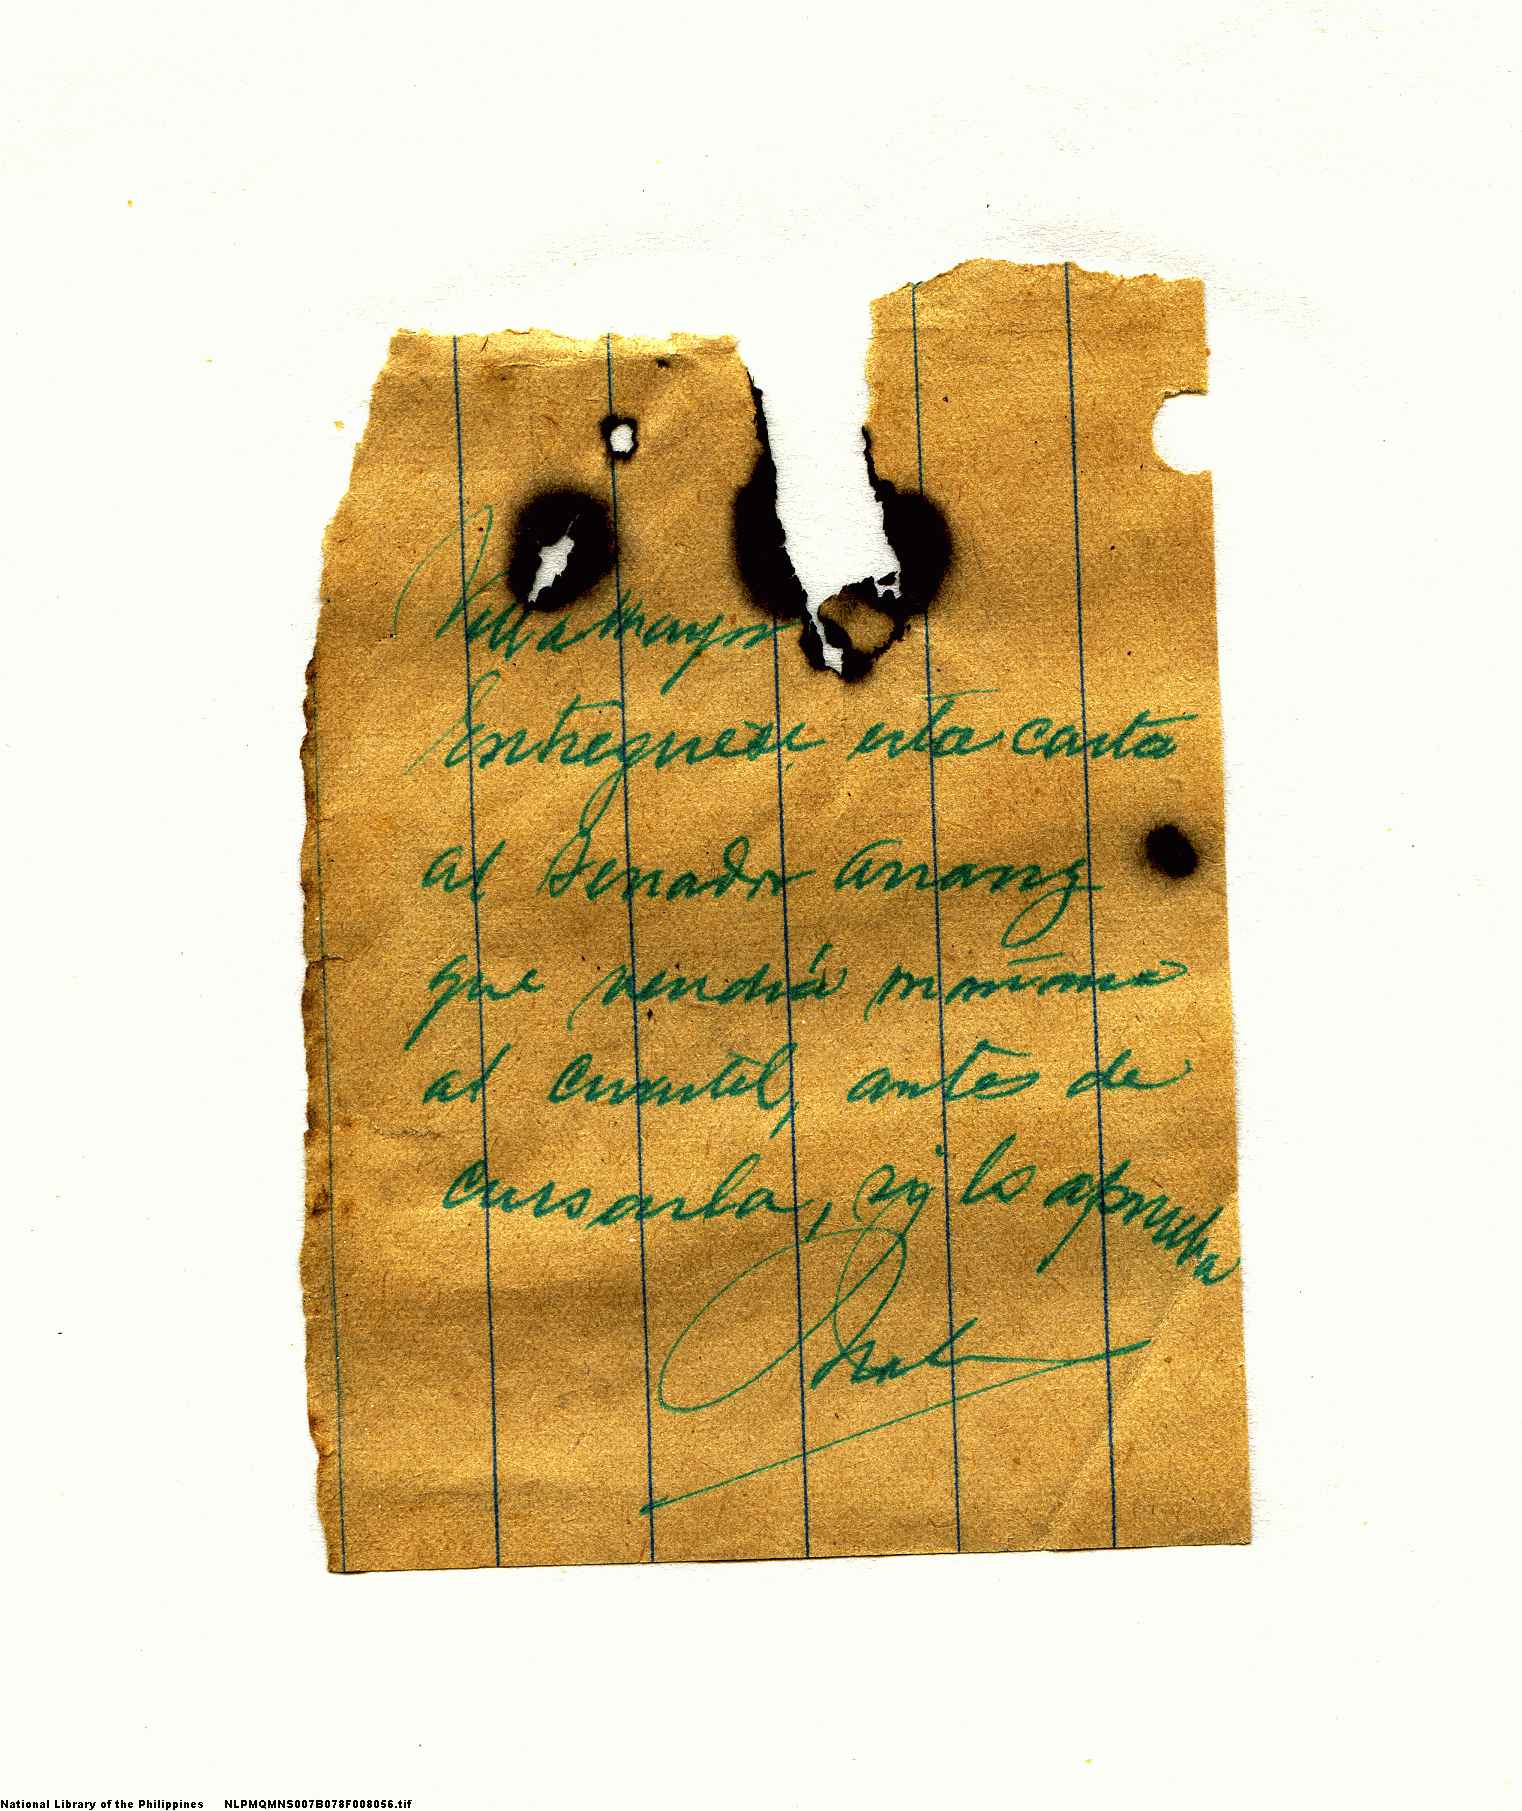 Villamayor
Entreguese esta carta
al Senador Arranz
que vendrá mañana
al cuartel, antes de
cursarla, si lo aprueba
National Library of the Philippines NLPMQMNS007B078F008056.tif